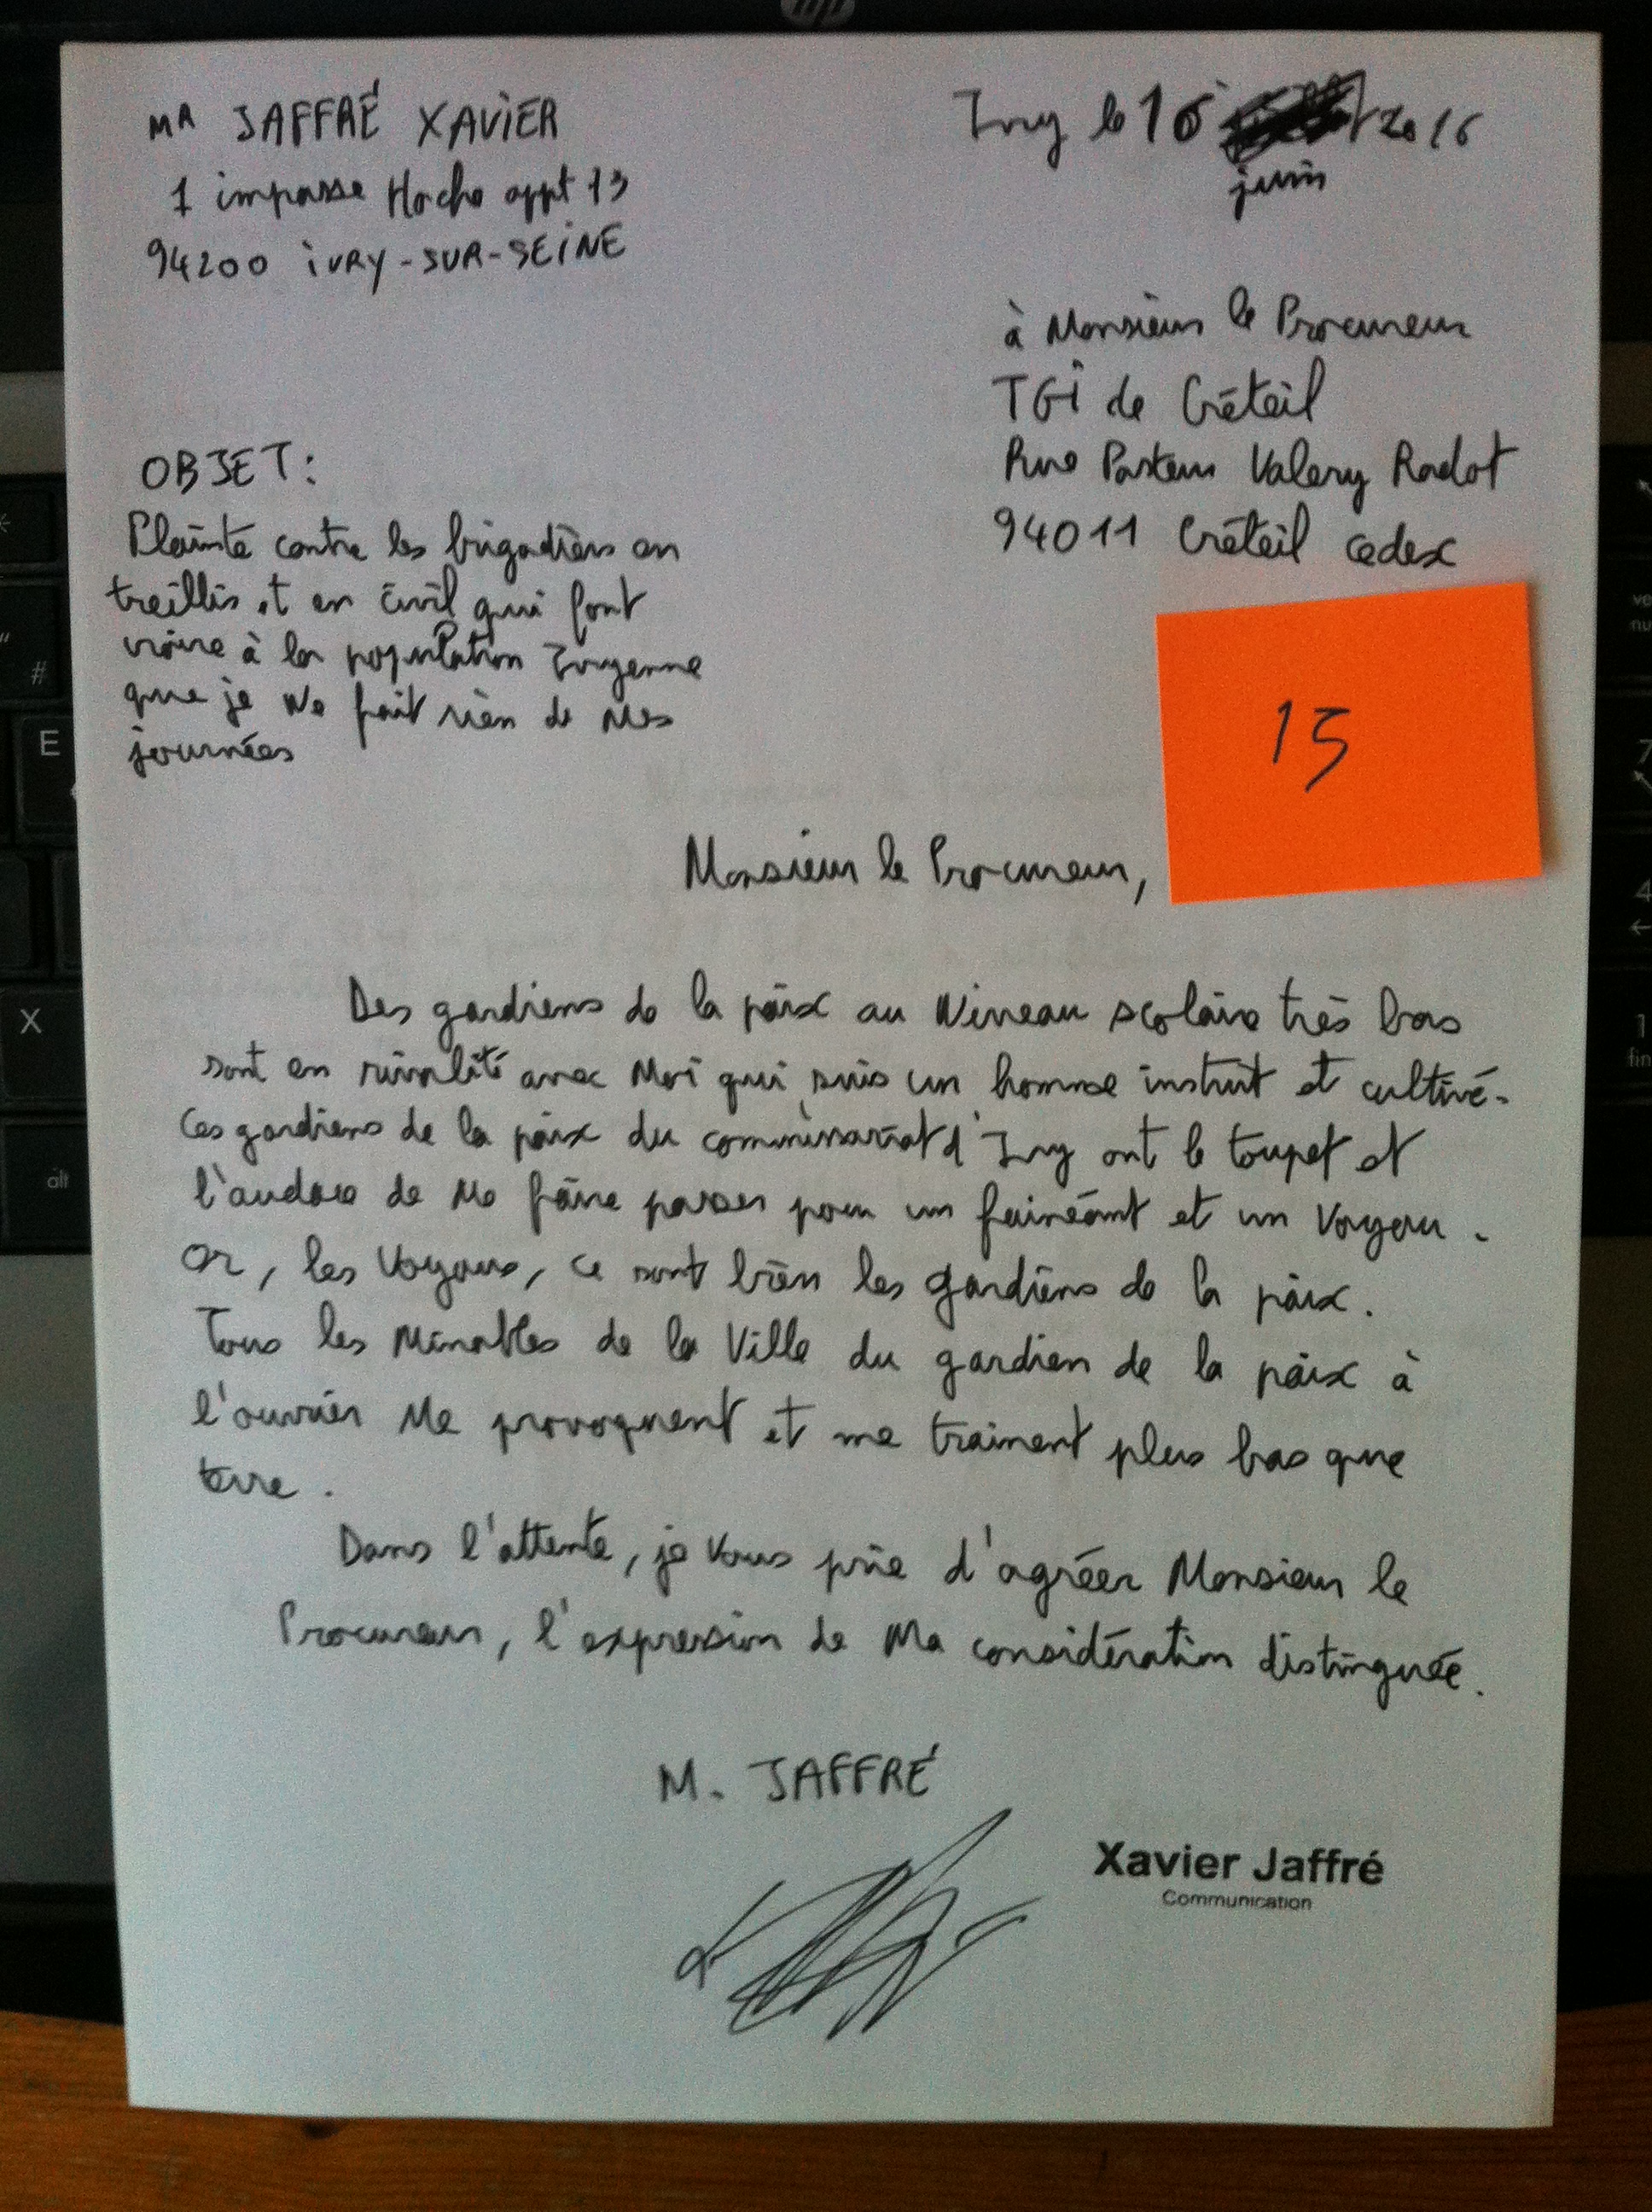 MR JAFFRÉ XAVIER
1 impasse Hoche appt 13
94200 IVRY-SUR-SEINE
Ivry le 16 2016
juin
à Monsieur le Procureur
TGI de Créteil
Rue Pasteur Valery Radot
94011 Créteil cedex
OBJET:
Plainte contre les brigadiers en
treillis et en civil qui font
croire à la population Ivryenne
que je ne fait rien de mes
journées
15
Monsieur le Procureur,
Des gardiens de la paix au niveau scolaire très bas
sont en rivalité avec moi qui suis un homme instruit et cultivé.
Ces gardiens de la paix du commissariat d'Ivry ont le toupet et
l'audace de me faire passer pour un fainéant et un voyou.
Or, les voyous, ce sont bien les gardiens de la paix.
Tous les minables de la ville du gardien de la paix à
l'ouvrier me provoquent et me trainent plus bas que
terre.
Dans l'attente, je vous prie d'agréer Monsieur le
Procureur, l'expression de ma considération distinguée.
M. JAFFRÉ
Xavier Jaffré
Communication
hp
E
X
alt
#